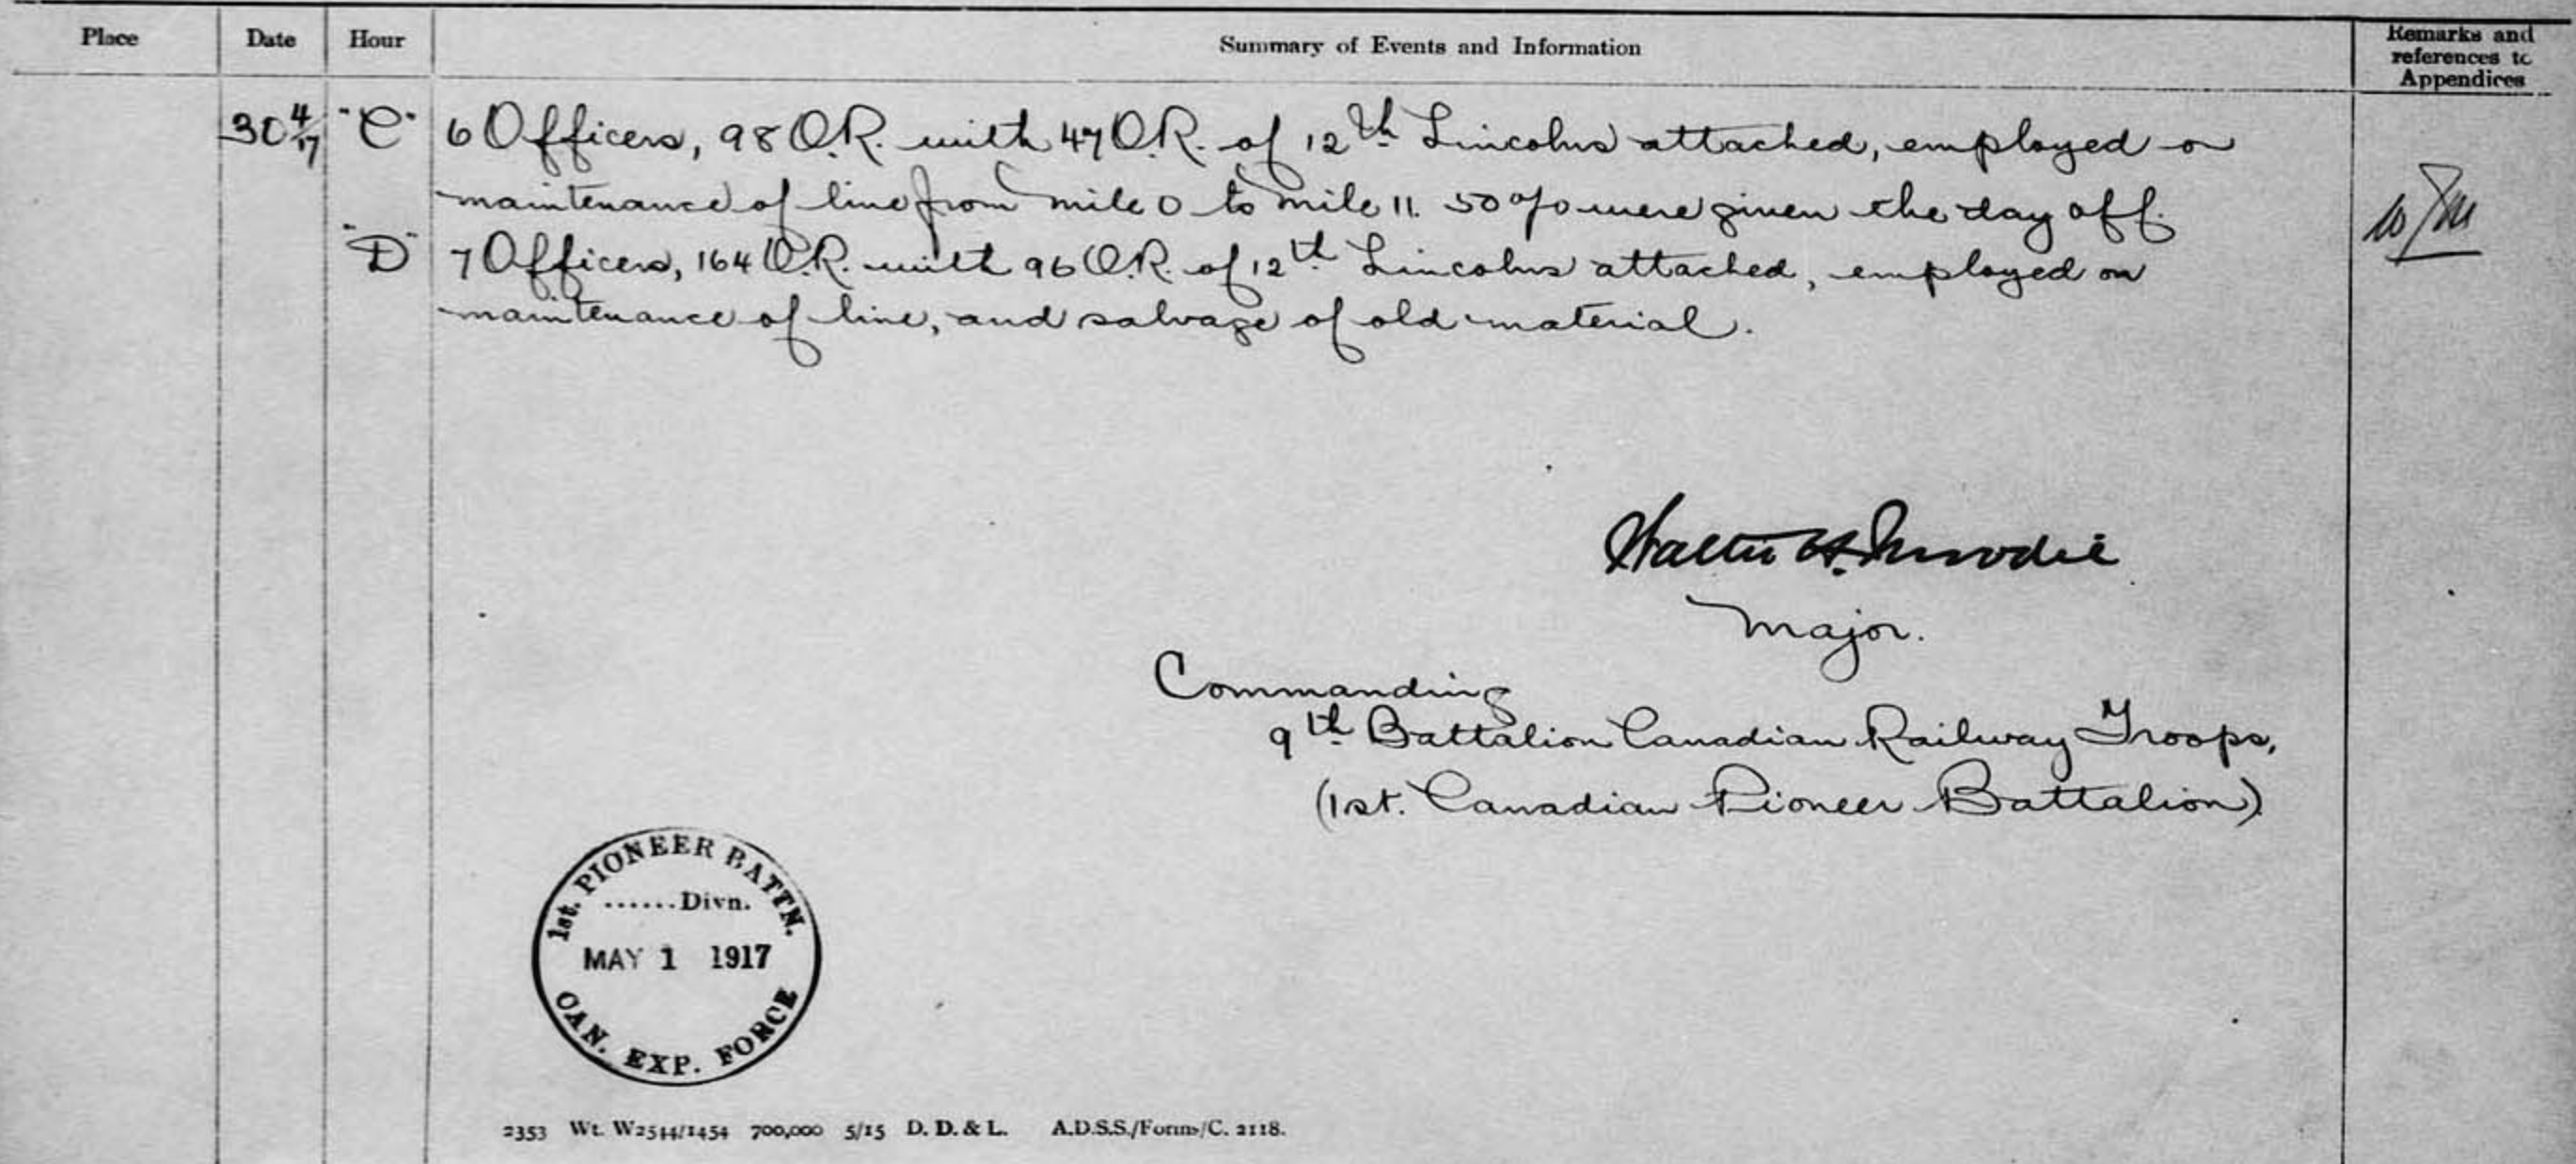 Place Date Hour Summary of Events and Information Remarks and references to Appendices
30 4/17 "C" 6 Officers, 98 O.R. with 47 O.R. of 12th Lincolns attached, employed on
maintenance of line from mile 0 to mile 11. 50% were given the day off.
"D" 7 Officers, 164 O.R. with 96 O.R. of 12th Lincolns attached, employed on
maintenance of line, and salvage of old material.
Walter H. Moodie
Major.
Commanding
9th Battalion Canadian Railway Troops,
(1st. Canadian Pioneer Battalion)
1st. PIONEER BATTN.
......Divn.
MAY 1 1917
CAN. EXP. FORCE
2353 Wt. W2544/1454 700,000 5/15 D. D. & L. A.D.S.S./Forms/C. 2118.